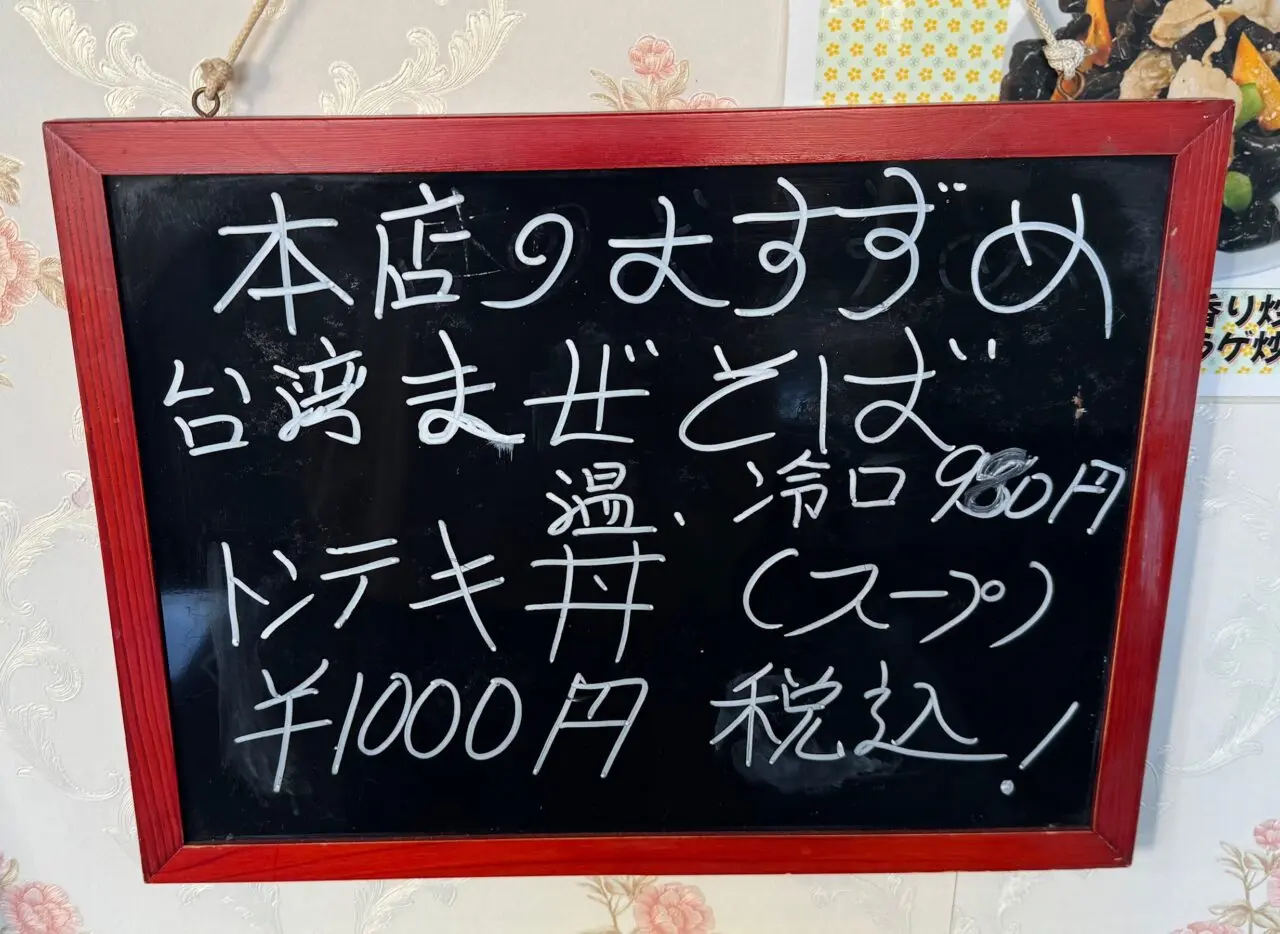 本店のおすすめ
台湾まぜそば
温、冷口 980円
トンテキ丼 (スープ)
¥1000円 税込!
香り炒
ラゲ炒